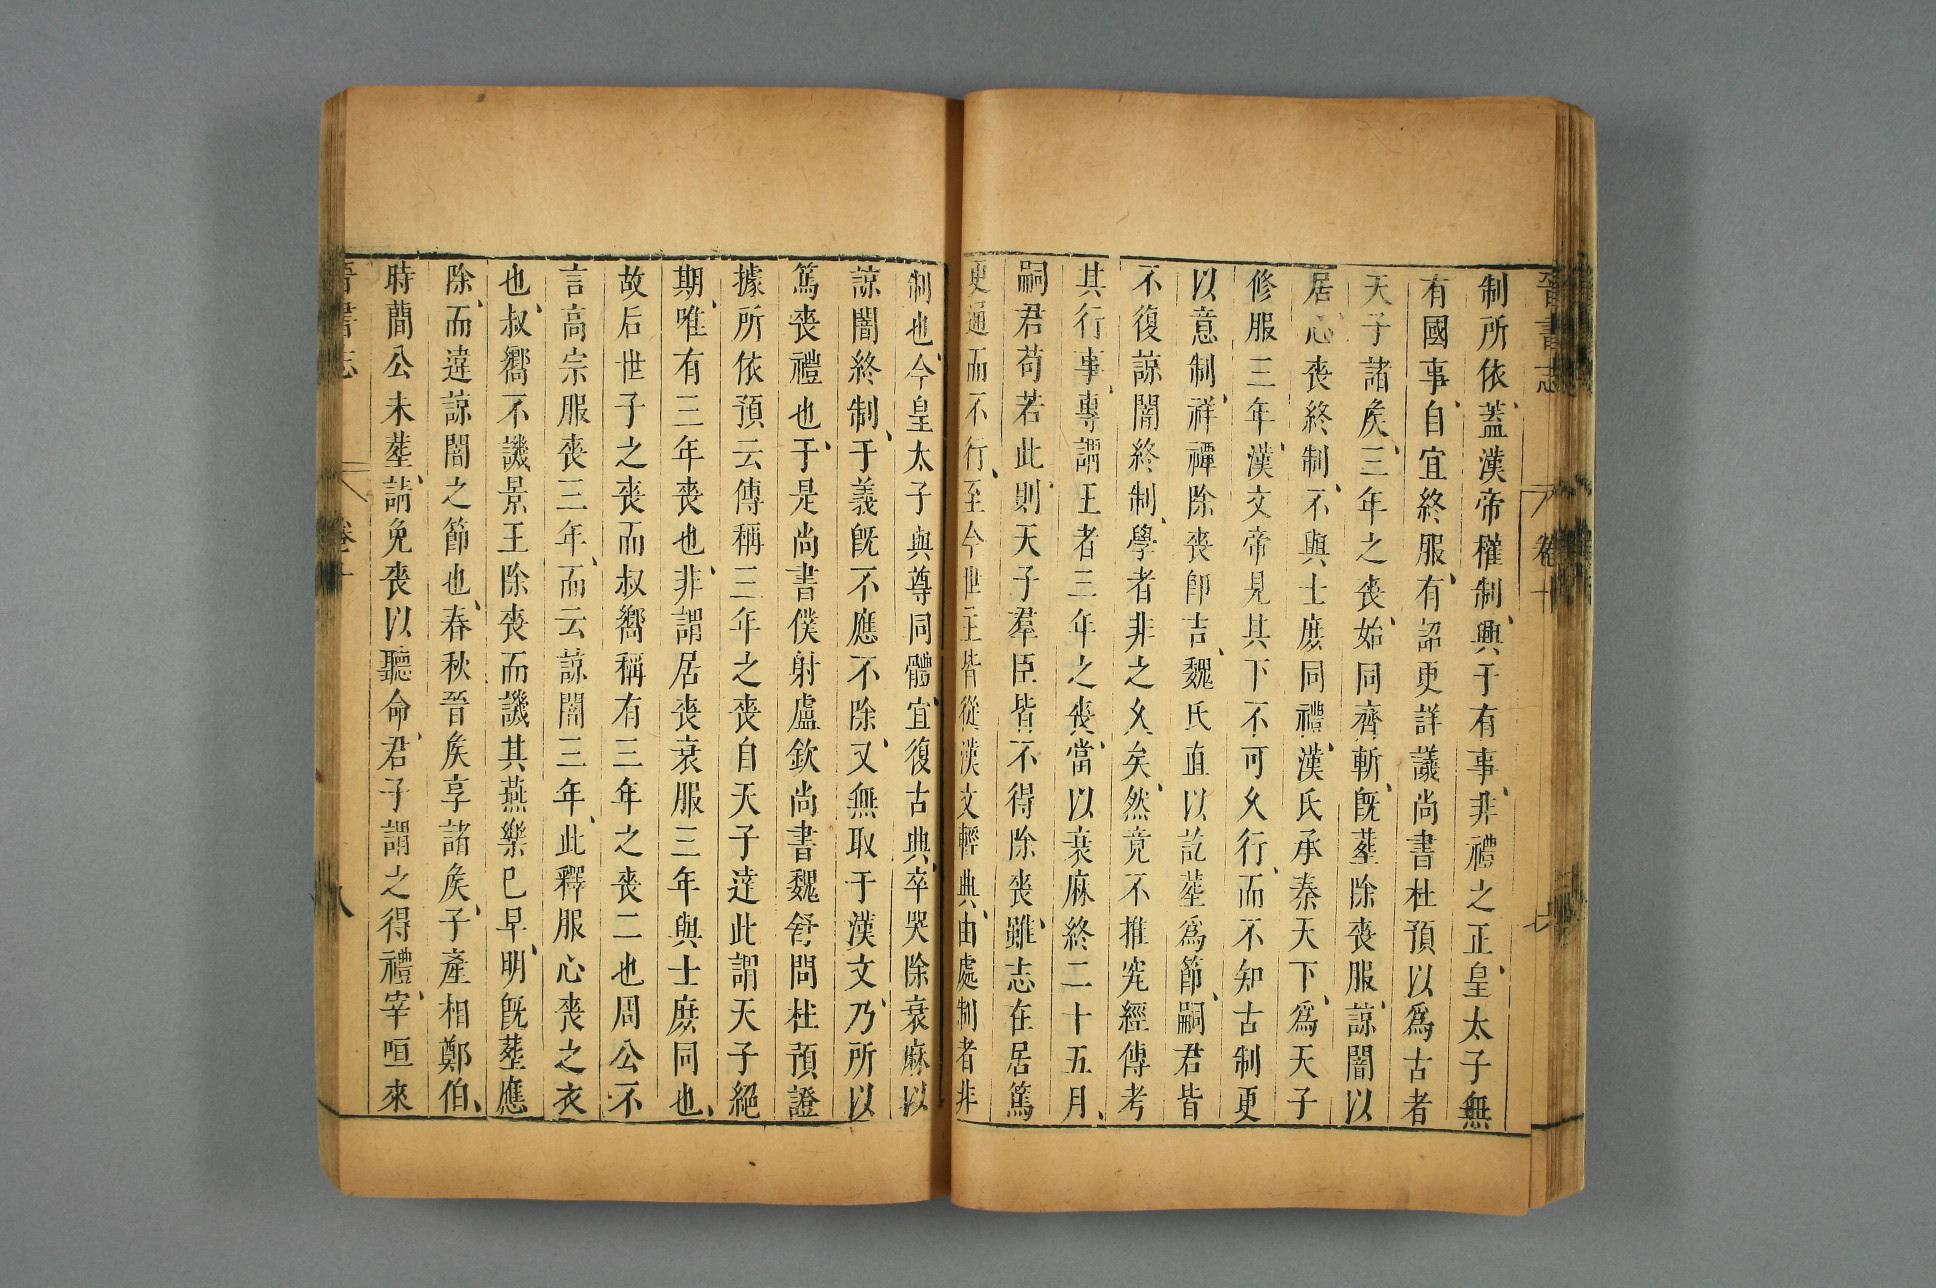 晉書志 卷十 七
制所依、蓋漢帝權制、興于有事、非禮之正、皇太子無
有國事、自宜終服、有詔更詳議尚書杜預以爲古者
天子諸矦、三年之喪、始同齊斬、旣葬除喪服、諒闇以
居、心喪終制、不與士庶同禮、漢氏承秦天下、爲天子
修服三年、漢文帝見其下不可久行、而不知古制更
以意制、祥禫除喪卽吉、魏氏直以訖葬爲節、嗣君皆
不復諒闇終制、學者非之久矣、然竟不推究經傳考
其行事、專謂王者三年之喪、當以衰麻終二十五月、
嗣君苟若此、則天子羣臣皆不得除喪、雖志在居篤
更逼而不行、至今世主皆從漢文輕典、由處制者非
制也、今皇太子與尊同體、宜復古典、卒哭除衰麻以
諒闇終制、于義旣不應不除、又無取于漢文、乃所以
篤喪禮也、于是尚書僕射盧欽尚書魏舒問杜預證
據所依預云傳稱三年之喪自天子達此謂天子絕
期、唯有三年喪也、非謂居喪衰服三年與士庶同也、
故后世子之喪而叔嚮稱有三年之喪二也周公不
言高宗服喪三年、而云諒闇三年、此釋服心喪之衣
也、叔嚮不譏景王除喪而譏其燕樂已早、明旣葬應
除、而違諒闇之節也、春秋晉矦享諸矦、子產相鄭伯、
時蕳公未葬、請免喪以聽命、君子謂之得禮、宰咺來
晉書志 卷十 八